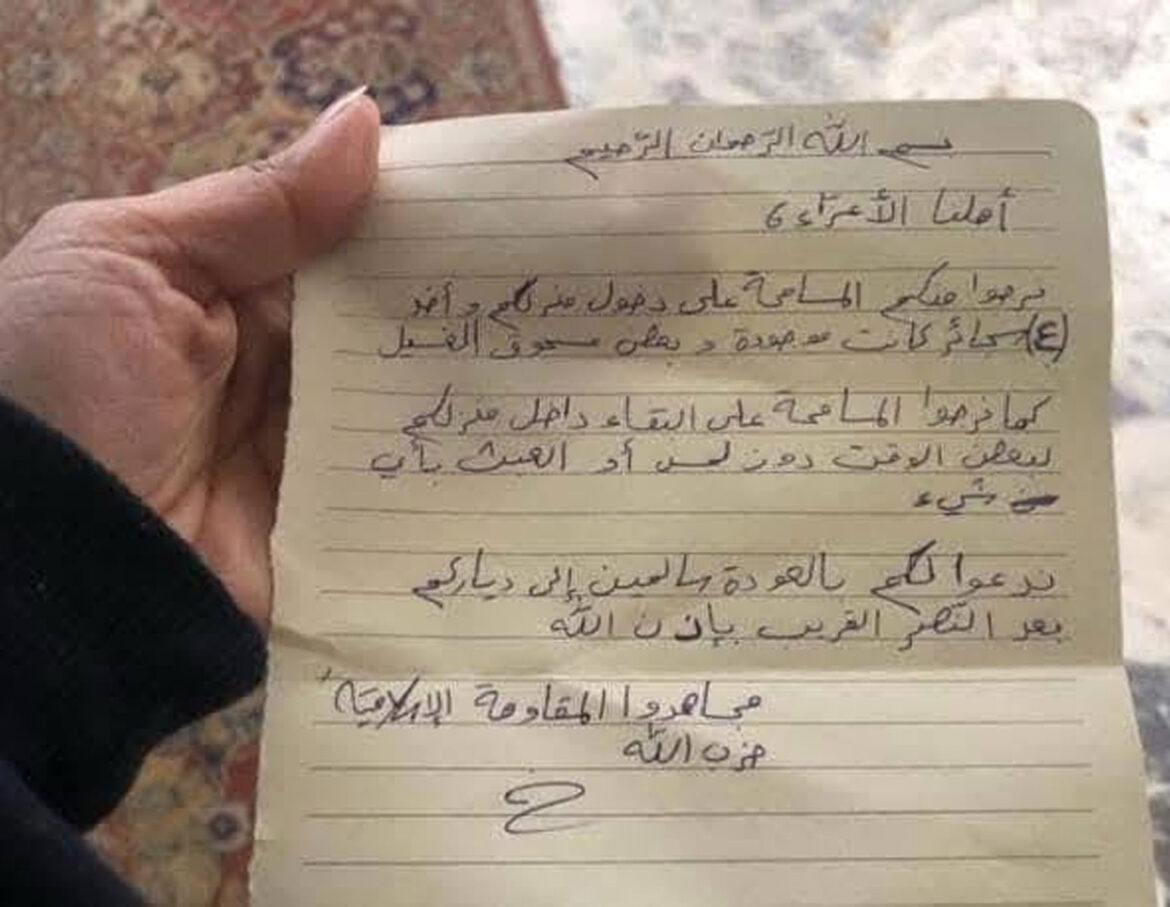 بسم الله الرحمان الرّحيم
أهلنا الأعزّاء ،
نرجوا منكم المسامحة على دخول منزلكم و أخذ
(٤) سجائر كانت موجودة و بعض مسحوق الغسيل
كما نرجوا المسامحة على البقاء داخل منزلكم
لبعض الوقت دون لمس أو العبث بأي
شيء
ندعوا لكم بالعودة سالمين إلى دياركم
بعد النّصر القريب بإذن الله
مجاهدوا المقاومة الإسلاميّة
حزب الله